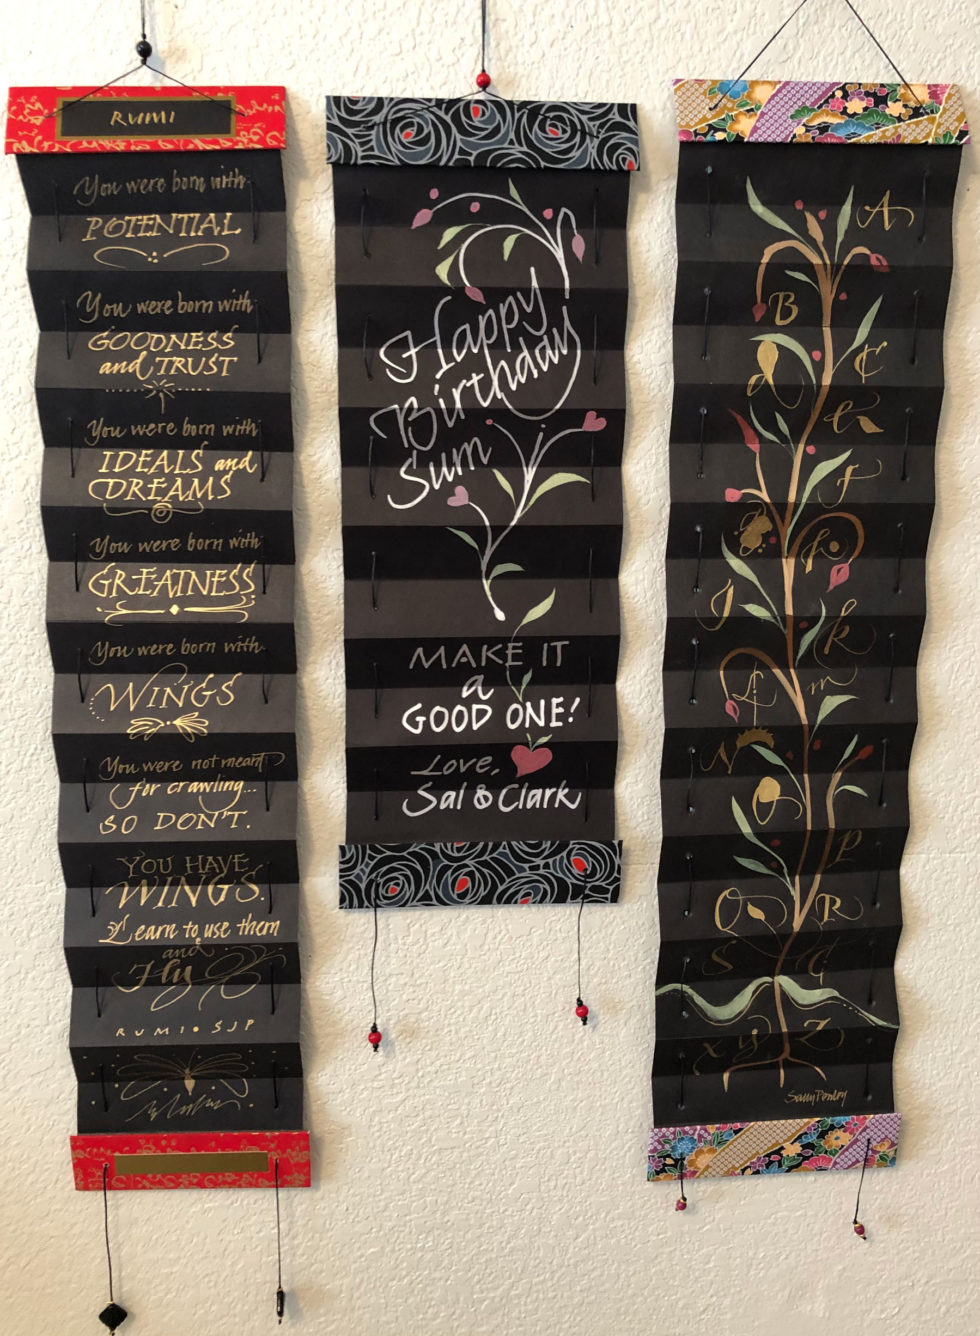 RUMI
You were born with
POTENTIAL
You were born with
GOODNESS
and TRUST
You were born with
IDEALS and
DREAMS
You were born with
GREATNESS
You were born with
WINGS
You were not meant
for crawling...
SO DON'T.
YOU HAVE
WINGS.
Learn to use them
and
Fly
RUMI • SJP
Happy
Birthday
Sum
MAKE IT
a
GOOD ONE!
Love,
Sal & Clark
A
B
C
d
e
f
g
h
I
k
L
m
N
O
P
Q
R
S
T
x y Z
Sally Penley